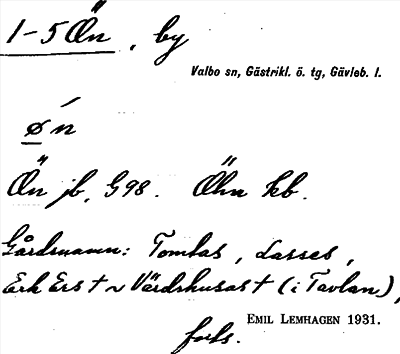 1-5 Ön, by
Valbo sn, Gästrikl. ö. tg, Gävleb. l.
ǿn
Ön jb, G98. Öhn kb.
Gårdsnamn: Tomtas, Lasses,
Erk Ers + ~ Värdshusas + (i Tavlan),
forts.
EMIL LEMHAGEN 1931.